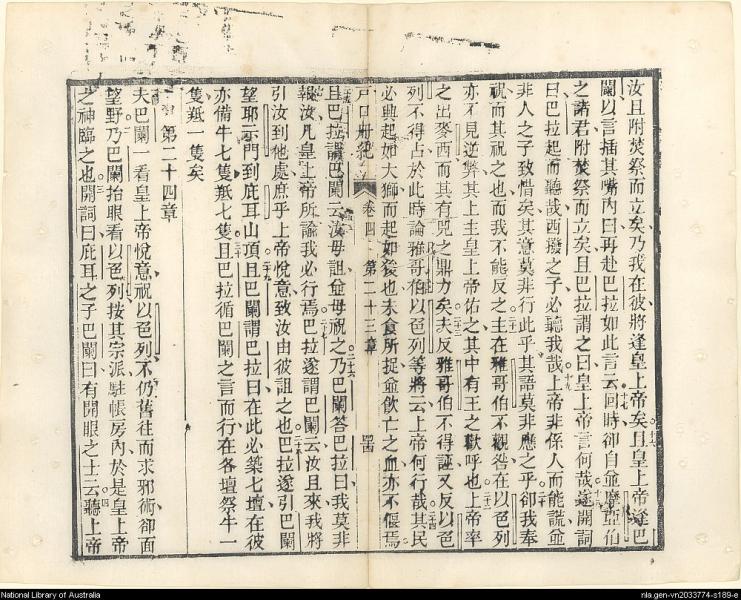 汝且附焚祭而立矣乃我在彼將逢皇上帝矣且皇上帝逢巴
闌以言插其嘴內曰再赴巴拉如此言云回時卻自並摩亞伯
之諸君附焚祭而立矣且巴拉謂之曰皇上帝言何哉遂開詞
曰巴拉起而聽哉西撥之子必聽我哉上帝非係人而能謊並
非人之子致惜矣其意莫非行此乎其語莫非應之乎卻我奉
祝而其祝之也而我不能反之主在雅哥伯不觀咎在以色列
亦不見逆弊其上主皇上帝佑之其中有王之歡呼也上帝率
之出麥西而其有兕之鼎力矣夫反雅哥伯不得誣又反以色
列不得占於此時論雅哥伯以色列等將云上帝何行哉其民
必興起如大獅而起如後也未食所捉並飲亡之血亦不偃焉
戶口冊紀 卷四 第二十三章
且巴拉謂巴闌云汝毋詛並毋祝之乃巴闌答巴拉曰我莫非
報汝凡皇上帝所諭我必行焉巴拉遂謂巴闌云汝且來我將
引汝到他處庶乎上帝悅意致汝由彼詛之也巴拉遂引巴闌
望耶示門到庇耳山頂且巴闌謂巴拉曰在此必築七壇在彼
亦備牛七隻羝七隻且巴拉循巴闌之言而行在各壇祭牛一
隻羝一隻矣
第二十四章
夫巴闌一看皇上帝悅意祝以色列不仍舊往而求邪術卻面
望野乃巴闌抬眼看以色列按其宗派駐帳房內於是皇上帝
之神臨之也開詞曰庇耳之子巴闌曰有開眼之士云聽上帝
National Library of Australia
nla.gen-vn2033774-s189-e